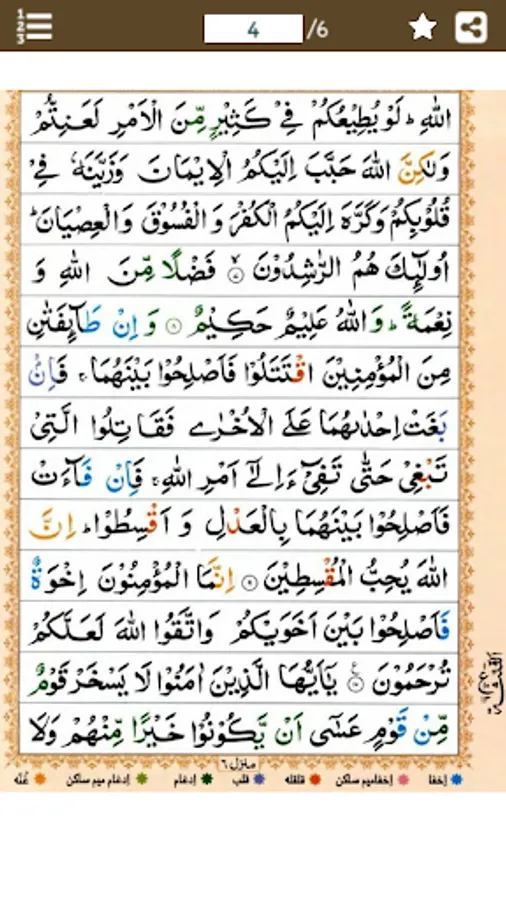 4 /6
اللّٰهِ ؕ لَوْ یُطِیْعُكُمْ فِیْ كَثِیْرٍ مِّنَ الْاَمْرِ لَعَنِتُّمْ
وَلٰكِنَّ اللّٰهَ حَبَّبَ اِلَیْكُمُ الْاِیْمَانَ وَزَیَّنَهٗ فِیْ
قُلُوْبِكُمْ وَكَرَّهَ اِلَیْكُمُ الْكُفْرَ وَ الْفُسُوْقَ وَالْعِصْیَانَ ؕ
اُولٰٓىِٕكَ هُمُ الرّٰشِدُوْنَ ۝۷ فَضْلًا مِّنَ اللّٰهِ وَ
نِعْمَةً ؕ وَاللّٰهُ عَلِیْمٌ حَكِیْمٌ ۝۸ وَ اِنْ طَآىِٕفَتٰنِ
مِنَ الْمُؤْمِنِیْنَ اقْتَتَلُوْا فَاَصْلِحُوْا بَیْنَهُمَا ۚ فَاِنْۢ
بَغَتْ اِحْدٰىهُمَا عَلَی الْاُخْرٰی فَقَاتِلُوا الَّتِیْ
تَبْغِیْ حَتّٰی تَفِیْٓءَ اِلٰۤی اَمْرِ اللّٰهِ ۚ فَاِنْ فَآءَتْ
فَاَصْلِحُوْا بَیْنَهُمَا بِالْعَدْلِ وَ اَقْسِطُوْا ؕ اِنَّ
اللّٰهَ یُحِبُّ الْمُقْسِطِیْنَ ۝۹ اِنَّمَا الْمُؤْمِنُوْنَ اِخْوَةٌ
فَاَصْلِحُوْا بَیْنَ اَخَوَیْكُمْ وَاتَّقُوا اللّٰهَ لَعَلَّكُمْ
تُرْحَمُوْنَ ۝۱۰ یٰۤاَیُّهَا الَّذِیْنَ اٰمَنُوْا لَا یَسْخَرْ قَوْمٌ
مِّنْ قَوْمٍ عَسٰۤی اَنْ یَّكُوْنُوْا خَیْرًا مِّنْهُمْ وَلَا
منزل ٦
اِخفا اِخفامیم ساکن قلقله قلب اِدغام اِدغام میم ساکن غُنّه